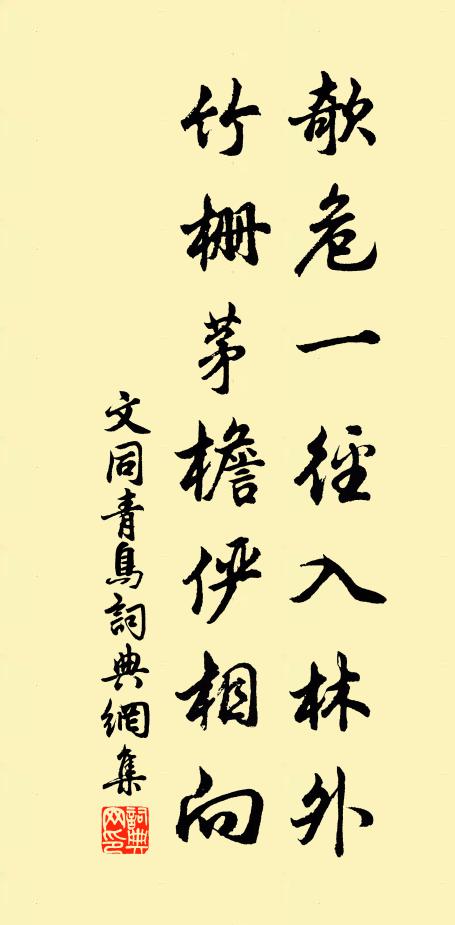 欹危一徑入林外
竹柵茅檐俨相向
文同青鳥詞典網集
詞典
网印